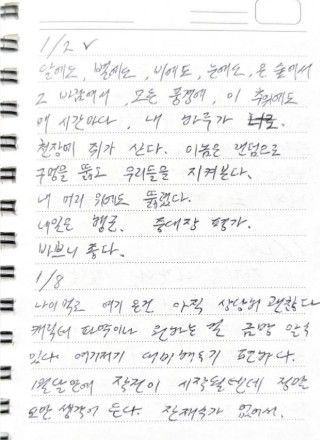 1/2 ✓
달에도, 별에도, 비에도, 눈에도, 온 숲에서
그 바람에서, 모든 풍경에, 이 추위에도
매 시간마다, 내 하루가 너로.
천장에 쥐가 산다. 이놈은 랜덤으로
구멍을 뚫고 우리들을 지켜본다.
내 머리 위에도 뚫렸다.
내일은 행군. 중대장 평가.
바쁘니 좋다.
1/8
나이 먹고 여기 온건 아직 상당히 괜찮다
캐릭터 파악이나 원하는 걸 금방 알 수
있다 여기저기 대미배우기 편하다.
1월달 안에 작전이 시작될텐데 정말
오만 생각이 든다. 잔재주가 없어서.